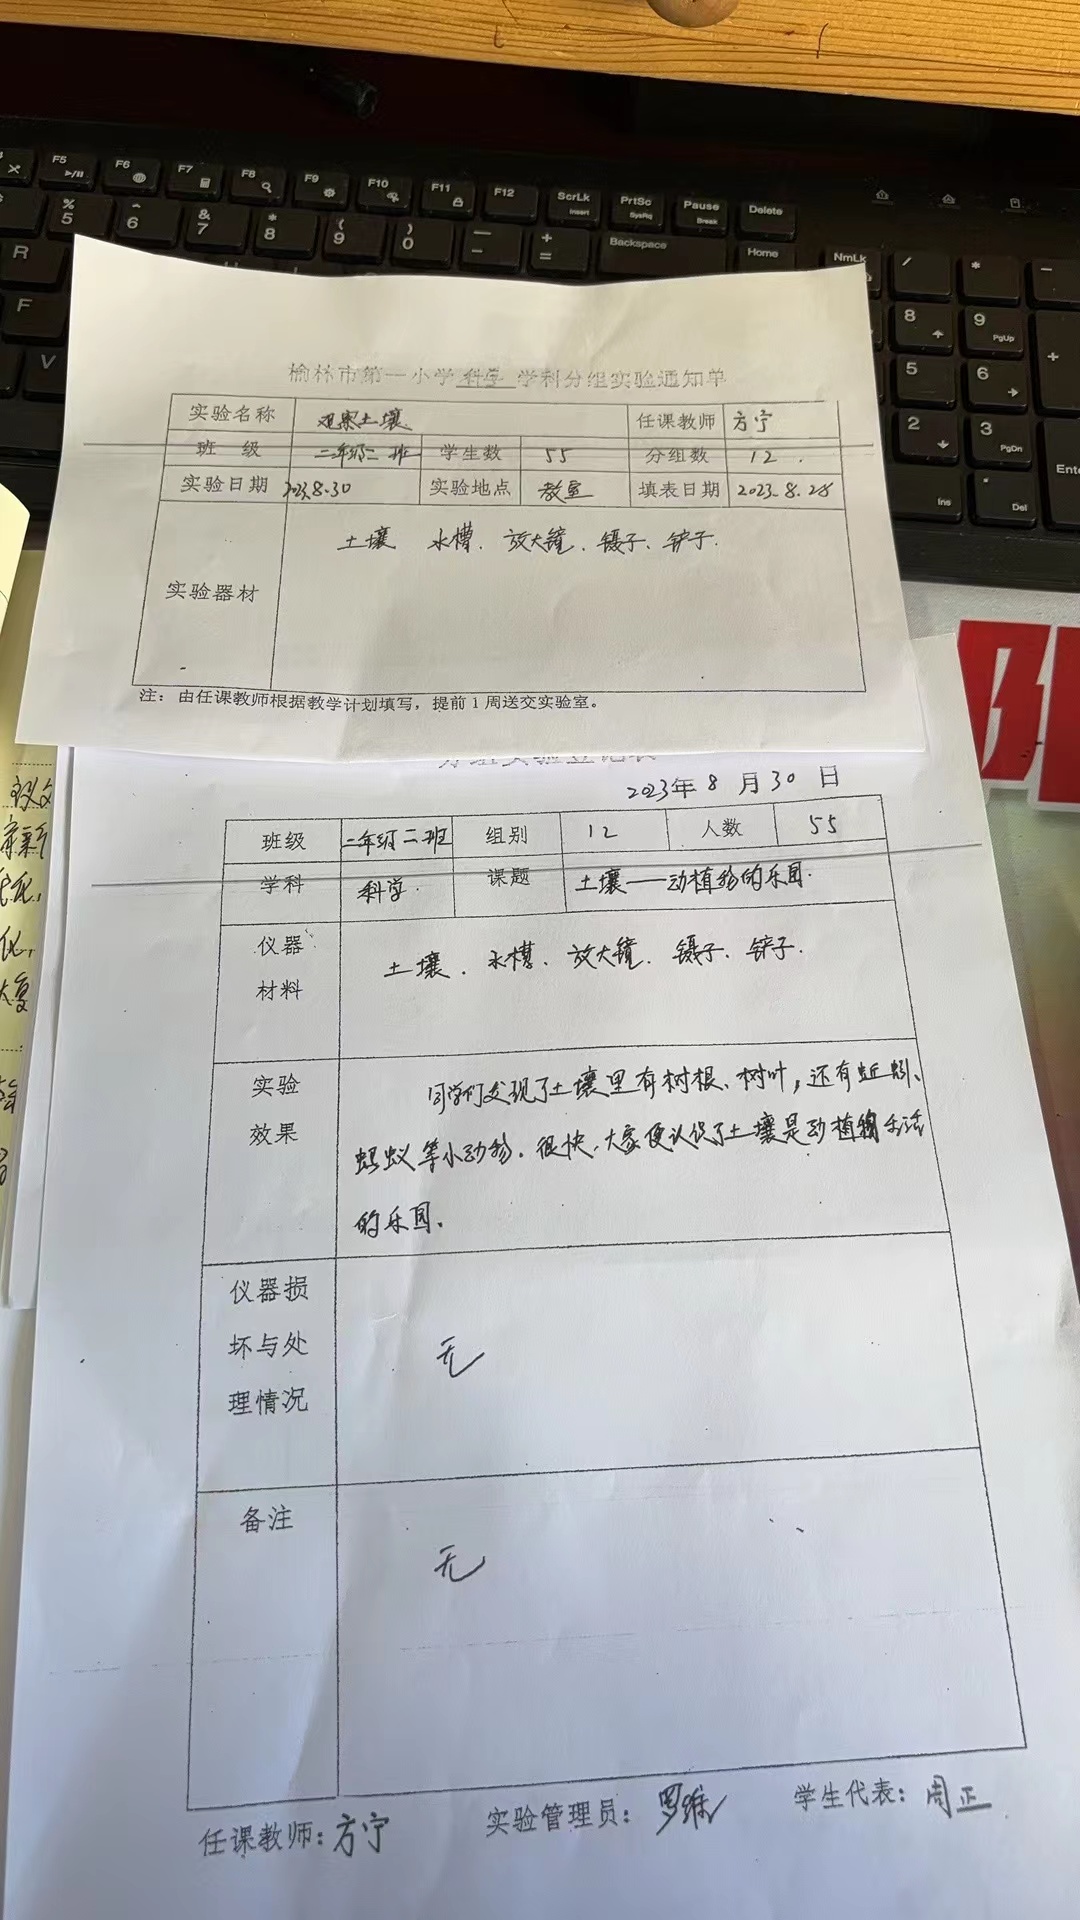 F5
F6
F7
F8
F9
F10
F11
F12
ScrLk
Insert
PrtSc
SysRq
Pause
Break
Delete
%
5
^
6
&
7
*
8
(
9
)
0
—
-
+
=
Backspace
Home
NmLk
/
*
-
R
F
V
8
9
PgUp
+
5
6
2
3
PgDn
Enter
Ins
.
Del
榆林市第一小学 科学 学科分组实验通知单
实验名称 观察土壤 任课教师 方宁
班 级 二年级二班 学生数 55 分组数 12.
实验日期 2023.8.30 实验地点 教室 填表日期 2023.8.28
实验器材 土壤 水槽、放大镜、镊子、铲子.
注：由任课教师根据教学计划填写，提前1周送交实验室。
分组实验登记表
2023年 8 月 30 日
班级 二年级二班 组别 12 人数 55
学科 科学. 课题 土壤——动植物的乐园.
仪器
材料
土壤、水槽、放大镜、镊子、铲子.
实验
效果
同学们发现了土壤里有树根、树叶，还有蚯蚓、
蚂蚁等小动物.很快,大家便认识了土壤是动植物生活
的乐园.
仪器损
坏与处
理情况
无
备注
无
任课教师：方宁 实验管理员： 学生代表：周正